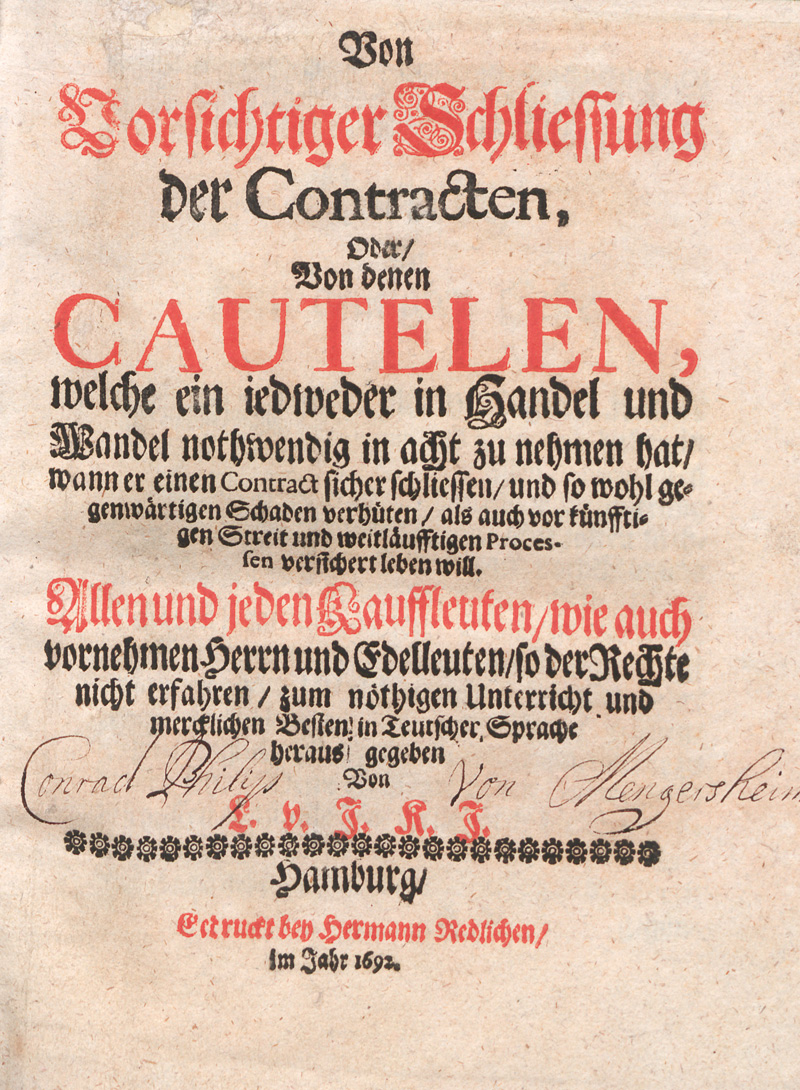 Von
Vorsichtiger Schliessung
der Contracten,
Oder/
Von denen
CAUTELEN,
welche ein iedweder in Handel und
Wandel nothwendig in acht zu nehmen hat/
wann er einen Contract sicher schliessen/ und so wohl ge-
genwärtigen Schaden verhüten/ als auch vor künffti-
gen Streit und weitläufftigen Proces-
sen versichert leben will.
Allen und jeden Kauffleuten/ wie auch
vornehmen Herrn und Edelleuten/ so der Rechte
nicht erfahren/ zum nöthigen Unterricht und
mercklichen Besten in Teutscher Sprache
heraus gegeben
Von
Conrad Philips Von Mengersheim
L. v. J. K. J.
Hamburg/
Gedruckt bey Hermann Redlichen/
im Jahr 1692.